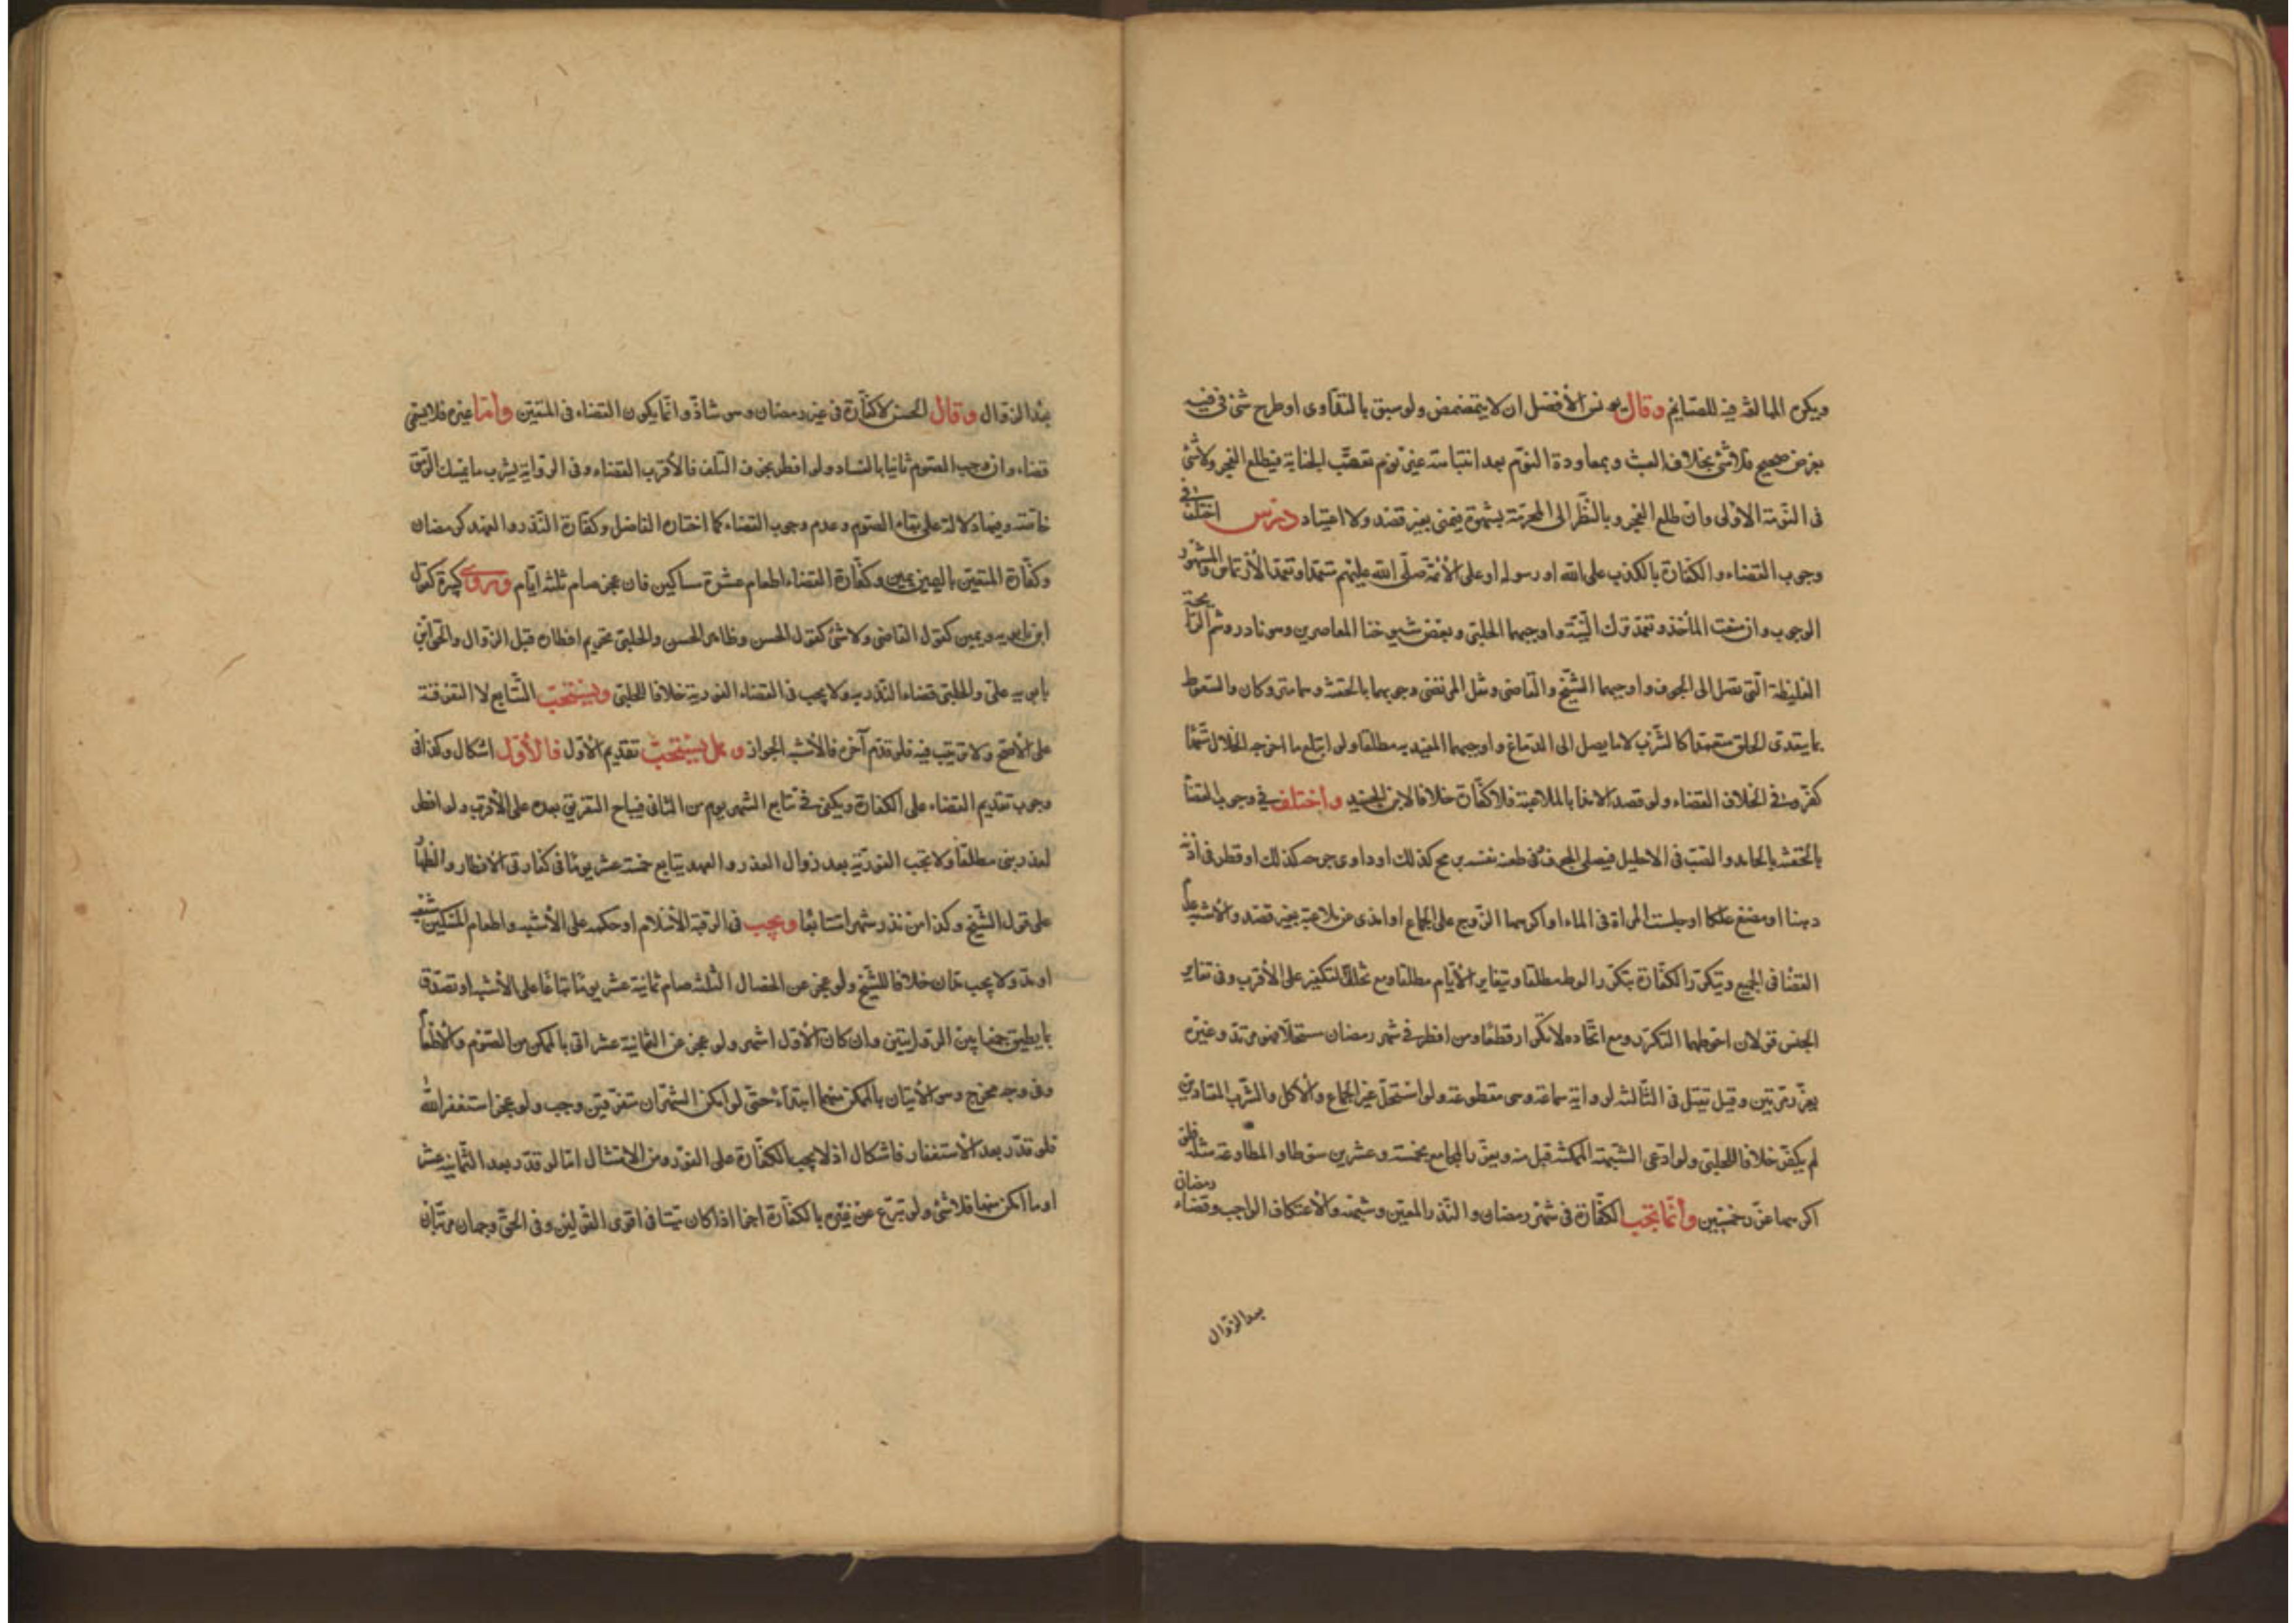 ويكره المبالغة فيه للصايم وقال يونس الأفضل ان لا يتمضمض ولو سبق بالتداوى او طرح شئ فى فيه
بغرض صحيح فلا شئ بخلاف العبث وبمعاودة النوم بعد انتباهته عن نوم تعقّب الجنابة فيطلع الفجر ولا شئ
فى النومة الاولى وان طلع الفجر وبالنظر الى المحرمة بشهوة فيمنى بغير قصد ولا اعتياد درس اختلف فى
وجوب القضاء والكفارة بالكذب على الله او رسوله او على الأئمة صلّى الله عليهم متعمدا وتعمد الارتماس والمشهور
الوجوب وان ضعف المأخذ وتعمد ترك النيّة واوجبهما الحلبى وبعض شيوخنا المعاصرين وهو نادر وشم الرايحة
الغليظة الّتى تصل الى الجوف واوجبهما الشّيخ والقاضى ونقل المرتضى وجوبهما بالحقنة وهما متروكان والسّعوط
بما يتعدى الحلق متعمدا كالشرب لا ما يصل الى الدماغ واوجبهما المفيد به مطلقا ولو ابتلع ما اخرجه الخلال متعمدا
كفّر وفى الخلاف القضاء ولو قصد الامذا بالملاعبة فلا كفّارة خلافا لابن الجنيد واختلف فى وجوب القضا
بالحقنة بالجامد والصّب فى الاحليل فيصل الجوف وفى طعنه نفسه برمح كذلك او داوى جرحه كذلك او قطر فى اذنه
دهنا او مضغ علكا او جلست المراة فى الماء او اكرهها الزّوج على الجماع او امذى عن ملاعبة بغير قصد والأشبه عدم
القضا فى الجميع ويتكرّر الكفّارة بتكرّر الوطء مطلقا وبتغاير الأيّام مطلقا ومع تخلّل التكفير على الأقرب وفى تغاير
الجنس قولان احوطهما التكرّر ومع اتّحاده لا تكرار قطعًا ومن افطر فى شهر رمضان مستحلّا فهو مرتد وغيره
يعزّر مرّتين وقيل يقتل فى الثّالثه لرواية سماعة وهى مقطوعة ولو استحلّ غير الجماع والأكل والشّرب المعتادين
لم يكفّر خلافا للحلبى ولو ادّعى الشبهة الممكنة قبل منه ويعزّر المجامع بخمسة وعشرين سوطا والمطاوعة مثله فلو
اكرهها عزّر خمسين وانّما تجب الكفّارة فى شهر رمضان والنّذر المعيّن وشبهه والأعتكاف الواجب وقضاء رمضان
بعد الزوال
بعد الزوال وقال الحسن لا كفّارة فى غير رمضان وهو شاذّ وانّما يكون القضاء فى المتعيّن وامّا غيره فلا يسمّى
قضاء وان وجب الصوم ثانيا بالفساد ولو افطر بخوف التّلف فالأقرب القضاء وفى الرواية يشرب ما يمسك الرّمق
خاصّة وفيها دلالة على بقاء الصّوم وعدم وجوب القضاء كما اختاره الفاضل وكفّارة النّذر والعهد كرمضان
وكفّارة المتعيّن باليمين يمين وكفّارة القضاء اطعام عشرة مساكين فان عجز صام ثلثه ايّام وروى كبيرة كقول
ابن بابويه ويمين كقول القاضى ولا شئ كقول الحسن وظاهر الحسن والحلبى تحريم افطاره قبل الزوال
بابويه على والحلبى قضاء النّذر به ولا يجب فى القضاء الفورية خلافا للحلبى ويستحبّ التّتابع لا التفرقة
على الأصحّ ولا ترتيب فيه فلو قدّم آخره فالأشبه الجواز وهل يستحبّ تقديم الأوّل فالأوّل اشكال وكذا فى
وجوب تقديم القضاء على الكفارة ويكفى فى تتابع الشهر يوم من الثانى فيباح التفريق بعده على الأقرب ولو افطر
لعذر بنى مطلقًا ولا تجب الفوريّة بعد زوال العذر والعبد يتابع خمسة عشر يومًا فى كفارتى الافطار والظهار
على قول الشّيخ وكذا من نذر شهرا متتابعًا ويجب فى الرقبة الأسلام او حكمه على الأشبه واطعام المسكين شبعه
او مدّ ولا يجب مدّان خلافا للشّيخ ولو عجز عن الخصال الثّلثه صام ثمانية عشر يومًا تباعًا على الأشبه او تصدّق
بما يطيق جمعا بين الروايتين وان كان الأوّل اشهر ولو عجز عن الثمانية عشر اتى بالممكن من الصّوم والاطعام
وفى وجه مخرج وهو الأتيان بالممكن منهما ابتداءً حتّى لو امكن الشهران متفرّقين وجب ولو عجز استغفر الله
فلو قدر بعد الأستغفار فاشكال اذ لا يجب الكفّارة على الفور ومن الامتثال امّا لو قدر بعد الثّمانية عشر
او ما امكن منها فلا شئ ولو تبرّع عن غيره بالكفّارة اجزا اذا كان ميّتا فى اقوى القولين وفى الحىّ وجهان مرتّبان